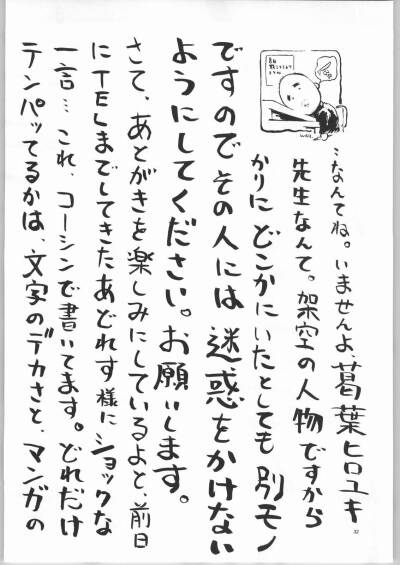 …なんてね。いませんよ、葛葉ヒロユキ
先生なんて。架空の人物ですから
かりにどこかにいたとしても別モノ
ですのでその人には迷惑をかけない
ようにしてください。お願いします。
さて、あとがきを楽しみにしているよと、前日
にTELまでしてきたあどれす様にショックな
一言…これ、コーシンで書いてます。どれだけ
テンパッてるかは、文字のデカさと、マンガの
32